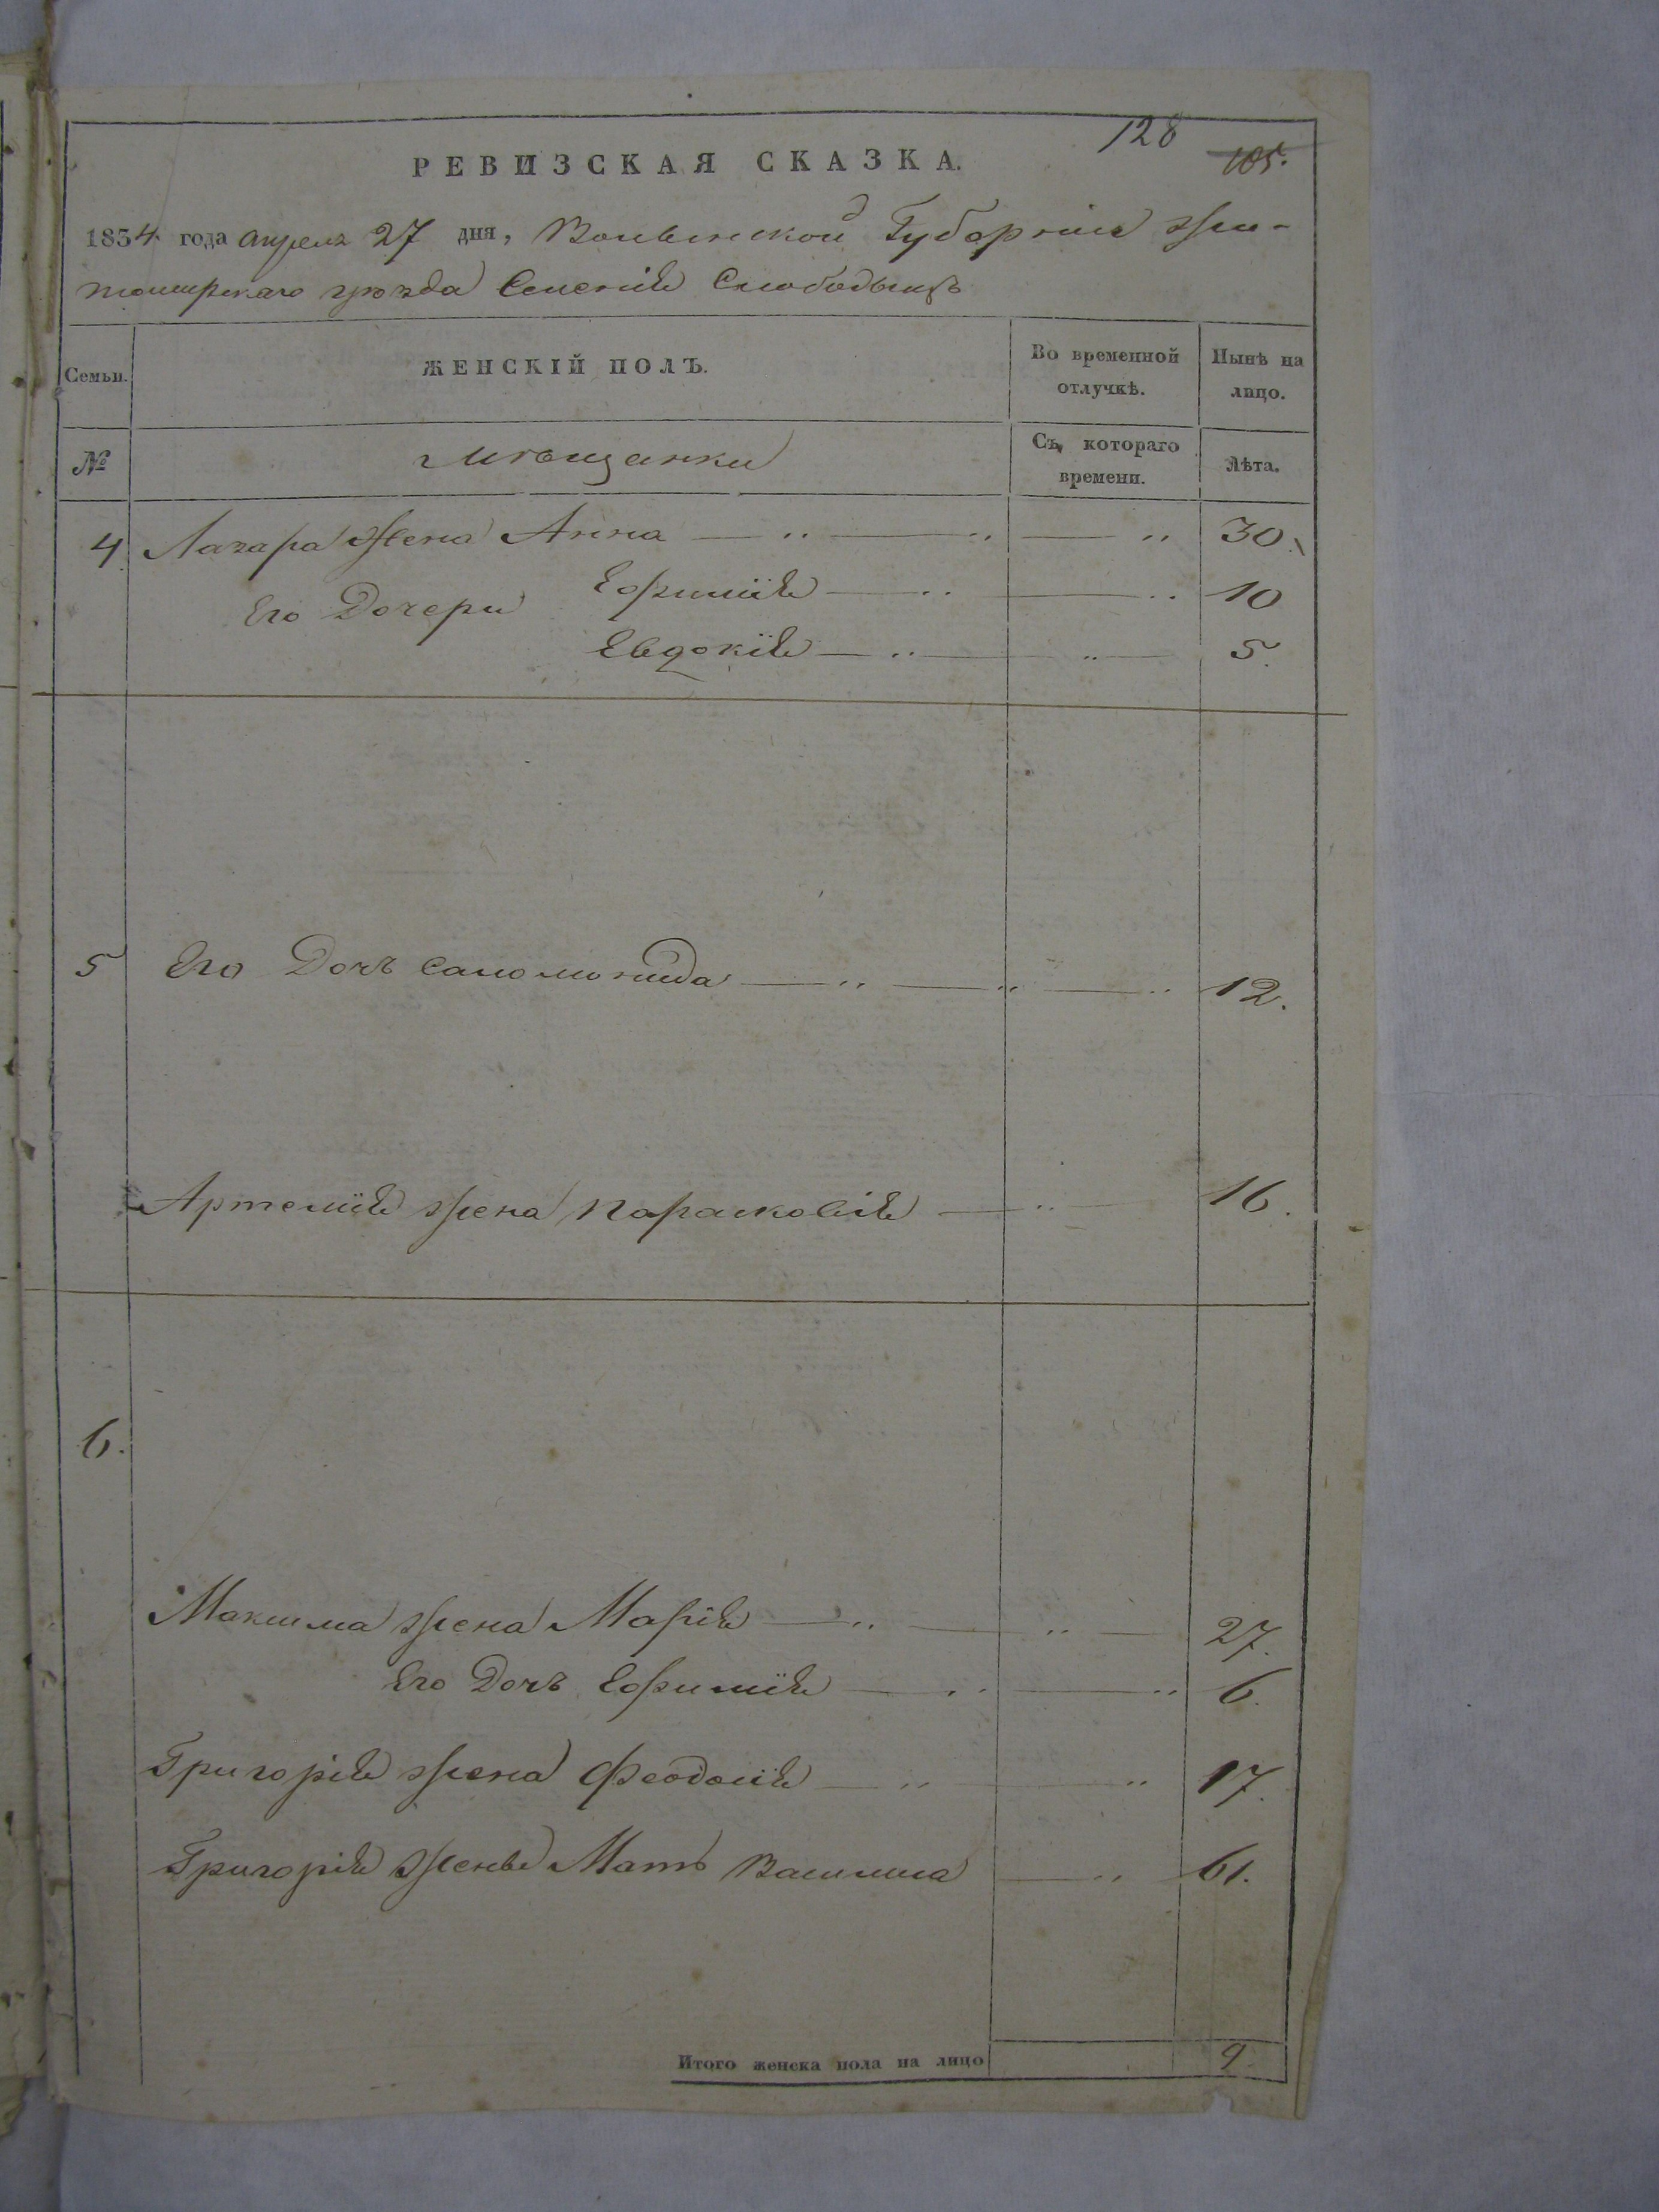 128
105.
РЕВИЗСКАЯ СКАЗКА.
1854 года апреля 27 дня, Волынской Губерніи Жи-
томирскаго уѣзда Селенія Слободыщъ
Семьи. ЖЕНСКІЙ ПОЛЪ. Во временной отлучкѣ. Нынѣ на лицо.
№ Мѣщанки Съ котораго времени. Лѣта.
4 Лазара жена Анна — „ — „ — „ 30.
Его Дочери Ефимія — „ — „ 10
Евдокія — „ — „ — 5.
5 Его Дочь Саломонида — „ — „ — „ 12.
Артемія жена Парасковія — „ — 16.
6.
Максима жена Марія — „ — „ — 27.
Его Дочь Ефимія — „ — „ 6.
Григорія жена Феодосія — „ — „ 17.
Григорія жены Мать Василиса — „ 61.
Итого женска пола на лицо 9.